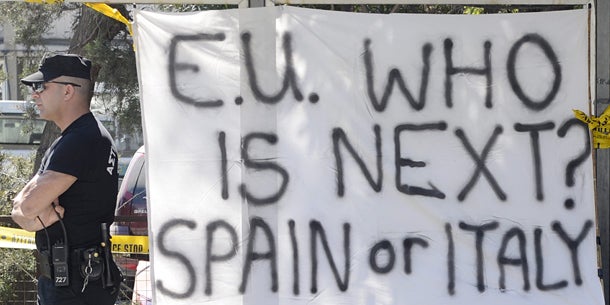 E.U. WHO
IS NEXT?
SPAIN or ITALY
727